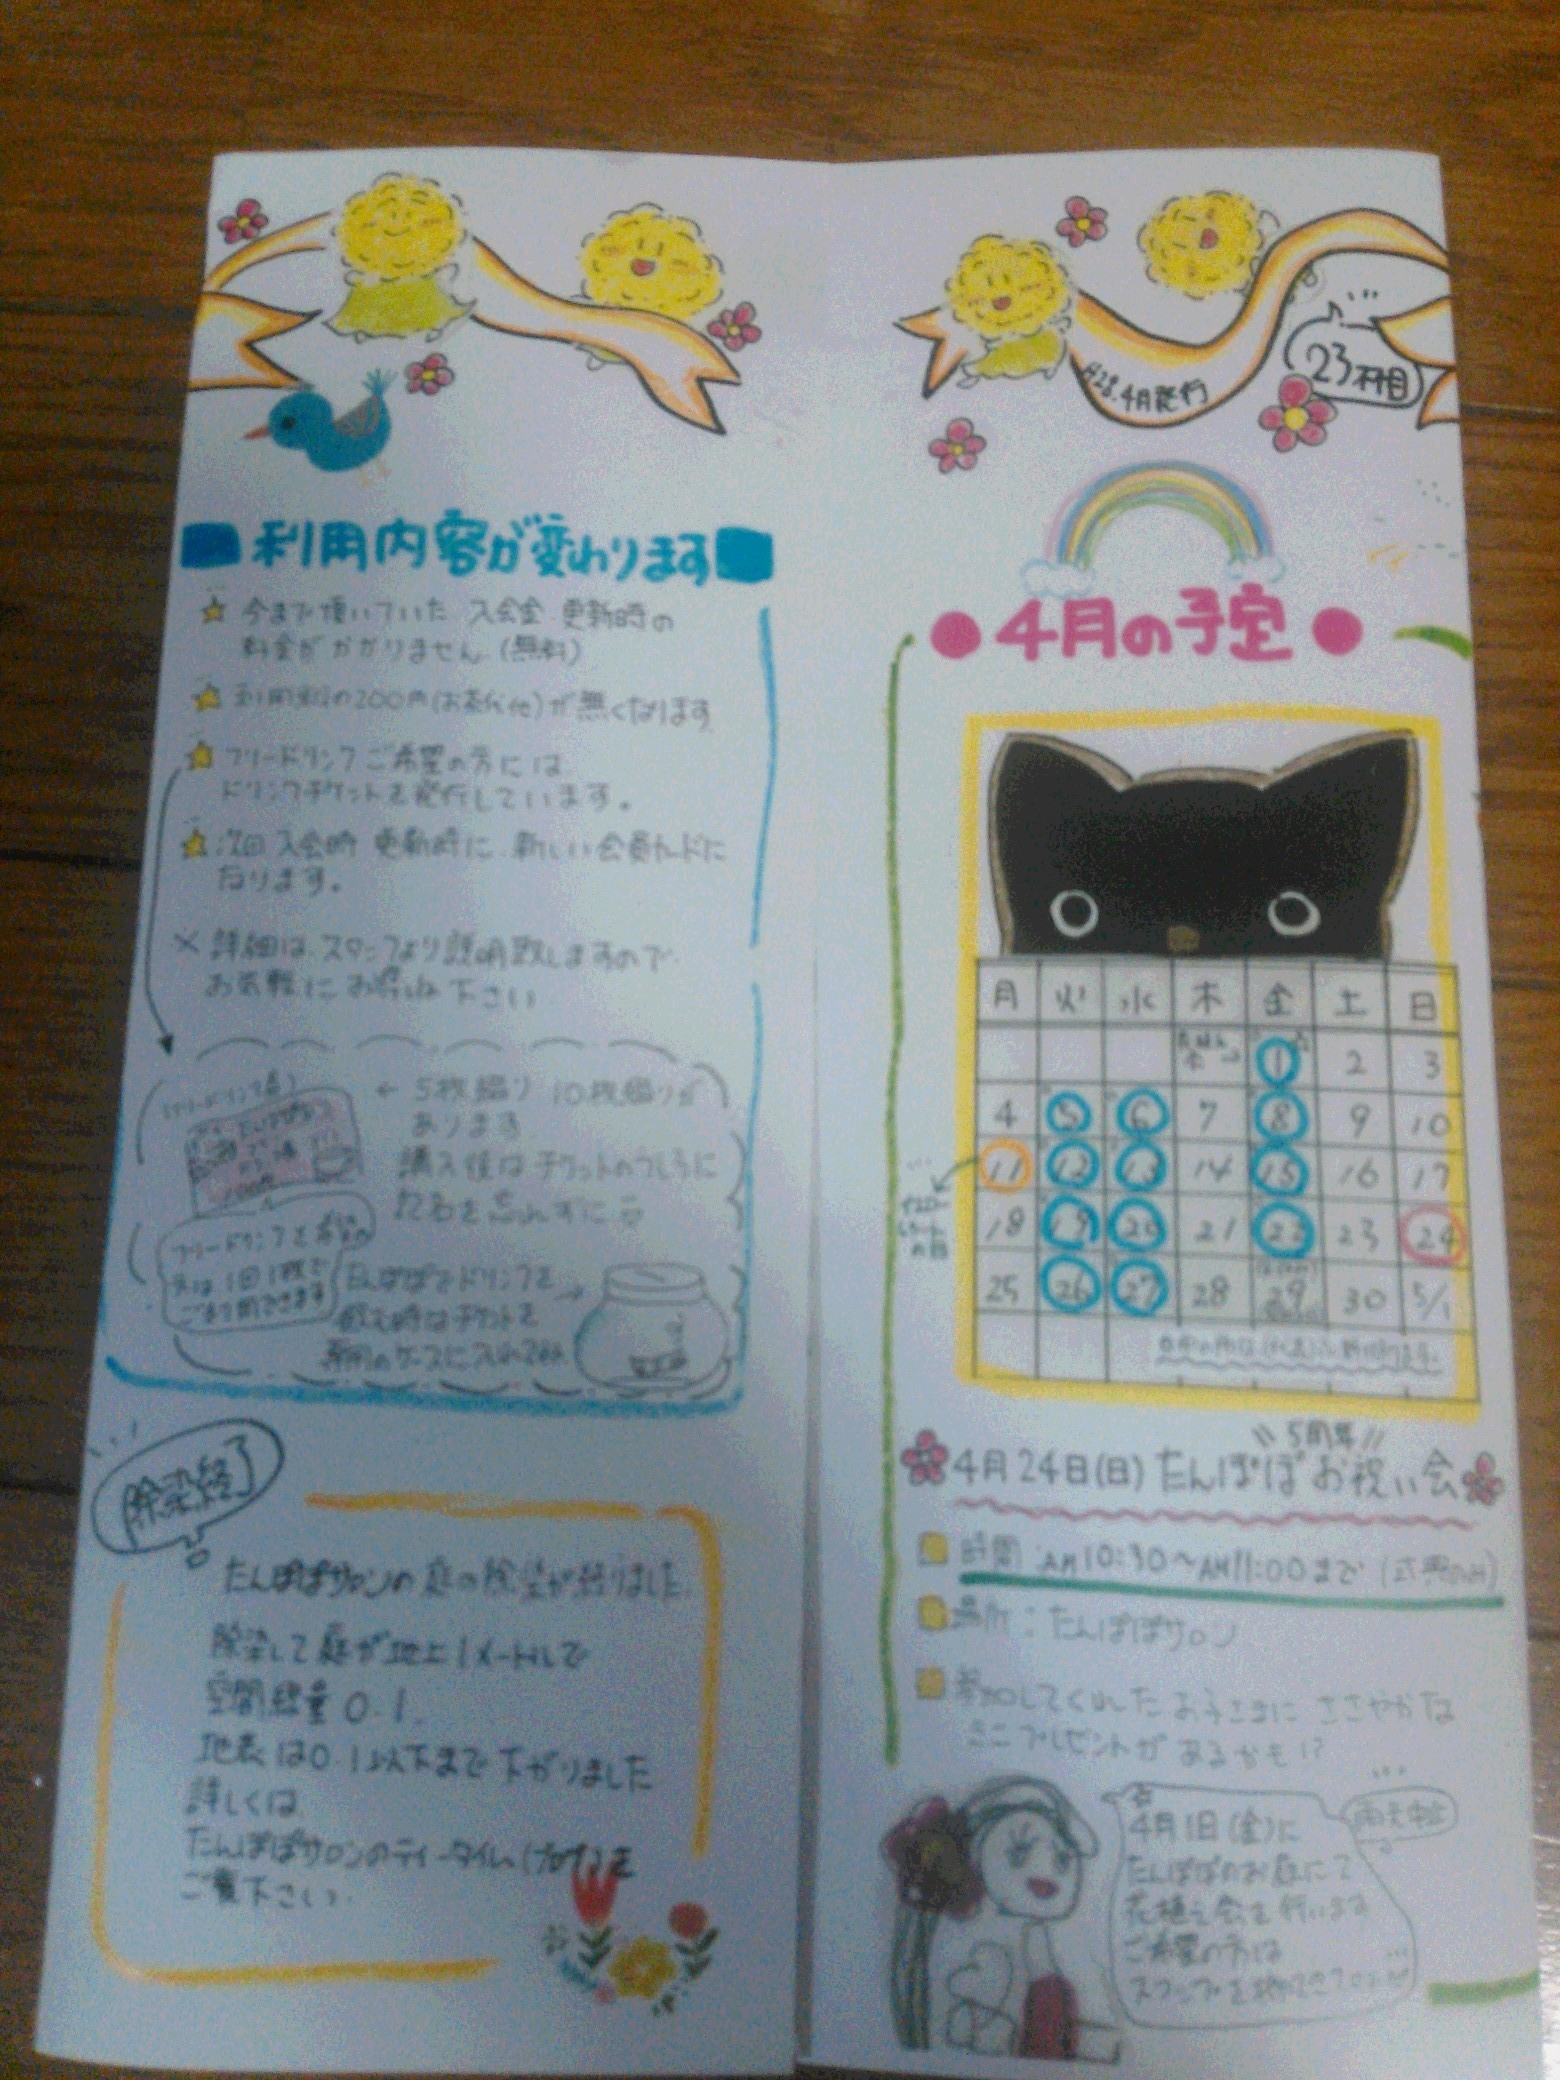 利用内容が変わります
今まで頂いていた 入会金 更新時の
料金がかかりません (無料)
利用料の200円(お茶代他)が無くなります
フリードリンクご希望の方には
ドリンクチケットを発行しています。
次回 入会時 更新時に 新しい会員カードに
なります。
× 詳細は、スタッフより説明致しますので
お気軽にお尋ね下さい
← 5枚綴り 10枚綴りが
あります
購入後はチケットのうしろに
記名を忘れずに
フリードリンクを希望の
方は1回1枚で
ご利用できます
たんぽぽでドリンクを →
飲む時はチケットを
専用のケースに入れてね
除染終了
たんぽぽサロンの庭の除染が終りました
除染して庭が地上1メートルで
空間線量0.1
地表は0.1以下まで下がりました
詳しくは
たんぽぽサロンのティータイム(ブログ)を
ご覧下さい
H28.4月発行
23不目
4月の予定
月 火 水 木 金 土 日
1 2 3
4 5 6 7 8 9 10
11 12 13 14 15 16 17
18 19 20 21 22 23 24
25 26 27 28 29 30 5/1
5周年
4月24日(日)たんぽぽお祝い会
時間 AM10:30〜AM11:00まで (式典のみ)
場所:たんぽぽサロン
参加してくれたお子さまに ささやかな
ミニプレゼントがあるかも!?
雨天中止
4月1日(金)に
たんぽぽのお庭にて
花植え会を行います
ご希望の方は